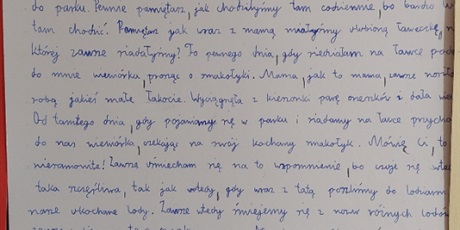 do parku. Pewnie pamiętasz, jak chodziłyśmy tam codziennie, bo bardzo
tam chodzić. Pamiętasz jak wraz z mamą miałyśmy ulubioną ławeczkę, n
której zawsze siadałyśmy? To pewnego dnia, gdy siedziałam na ławce podb
do mnie wiewiórka, prosząc o smakołyki. Mama, jak to mama, zawsze nosi
sobą jakieś małe łakocie. Wyciągnęła z kieszonki parę orzeszków i dała wie
Od tamtego dnia, gdy pojawiamy się w parku i siadamy na ławce przycho
do nas wiewiórka, czekając na swój kochany smakołyk. Mówię Ci, to
niesamowite! Zawsze uśmiecham się na to wspomnienie, bo czuję się wte
taka szczęśliwa, tak jak wtedy, gdy wraz z tatą poszliśmy do lodziarni
nasze ukochane lody. Zawsze wtedy śmiejemy się z nazw różnych lodów